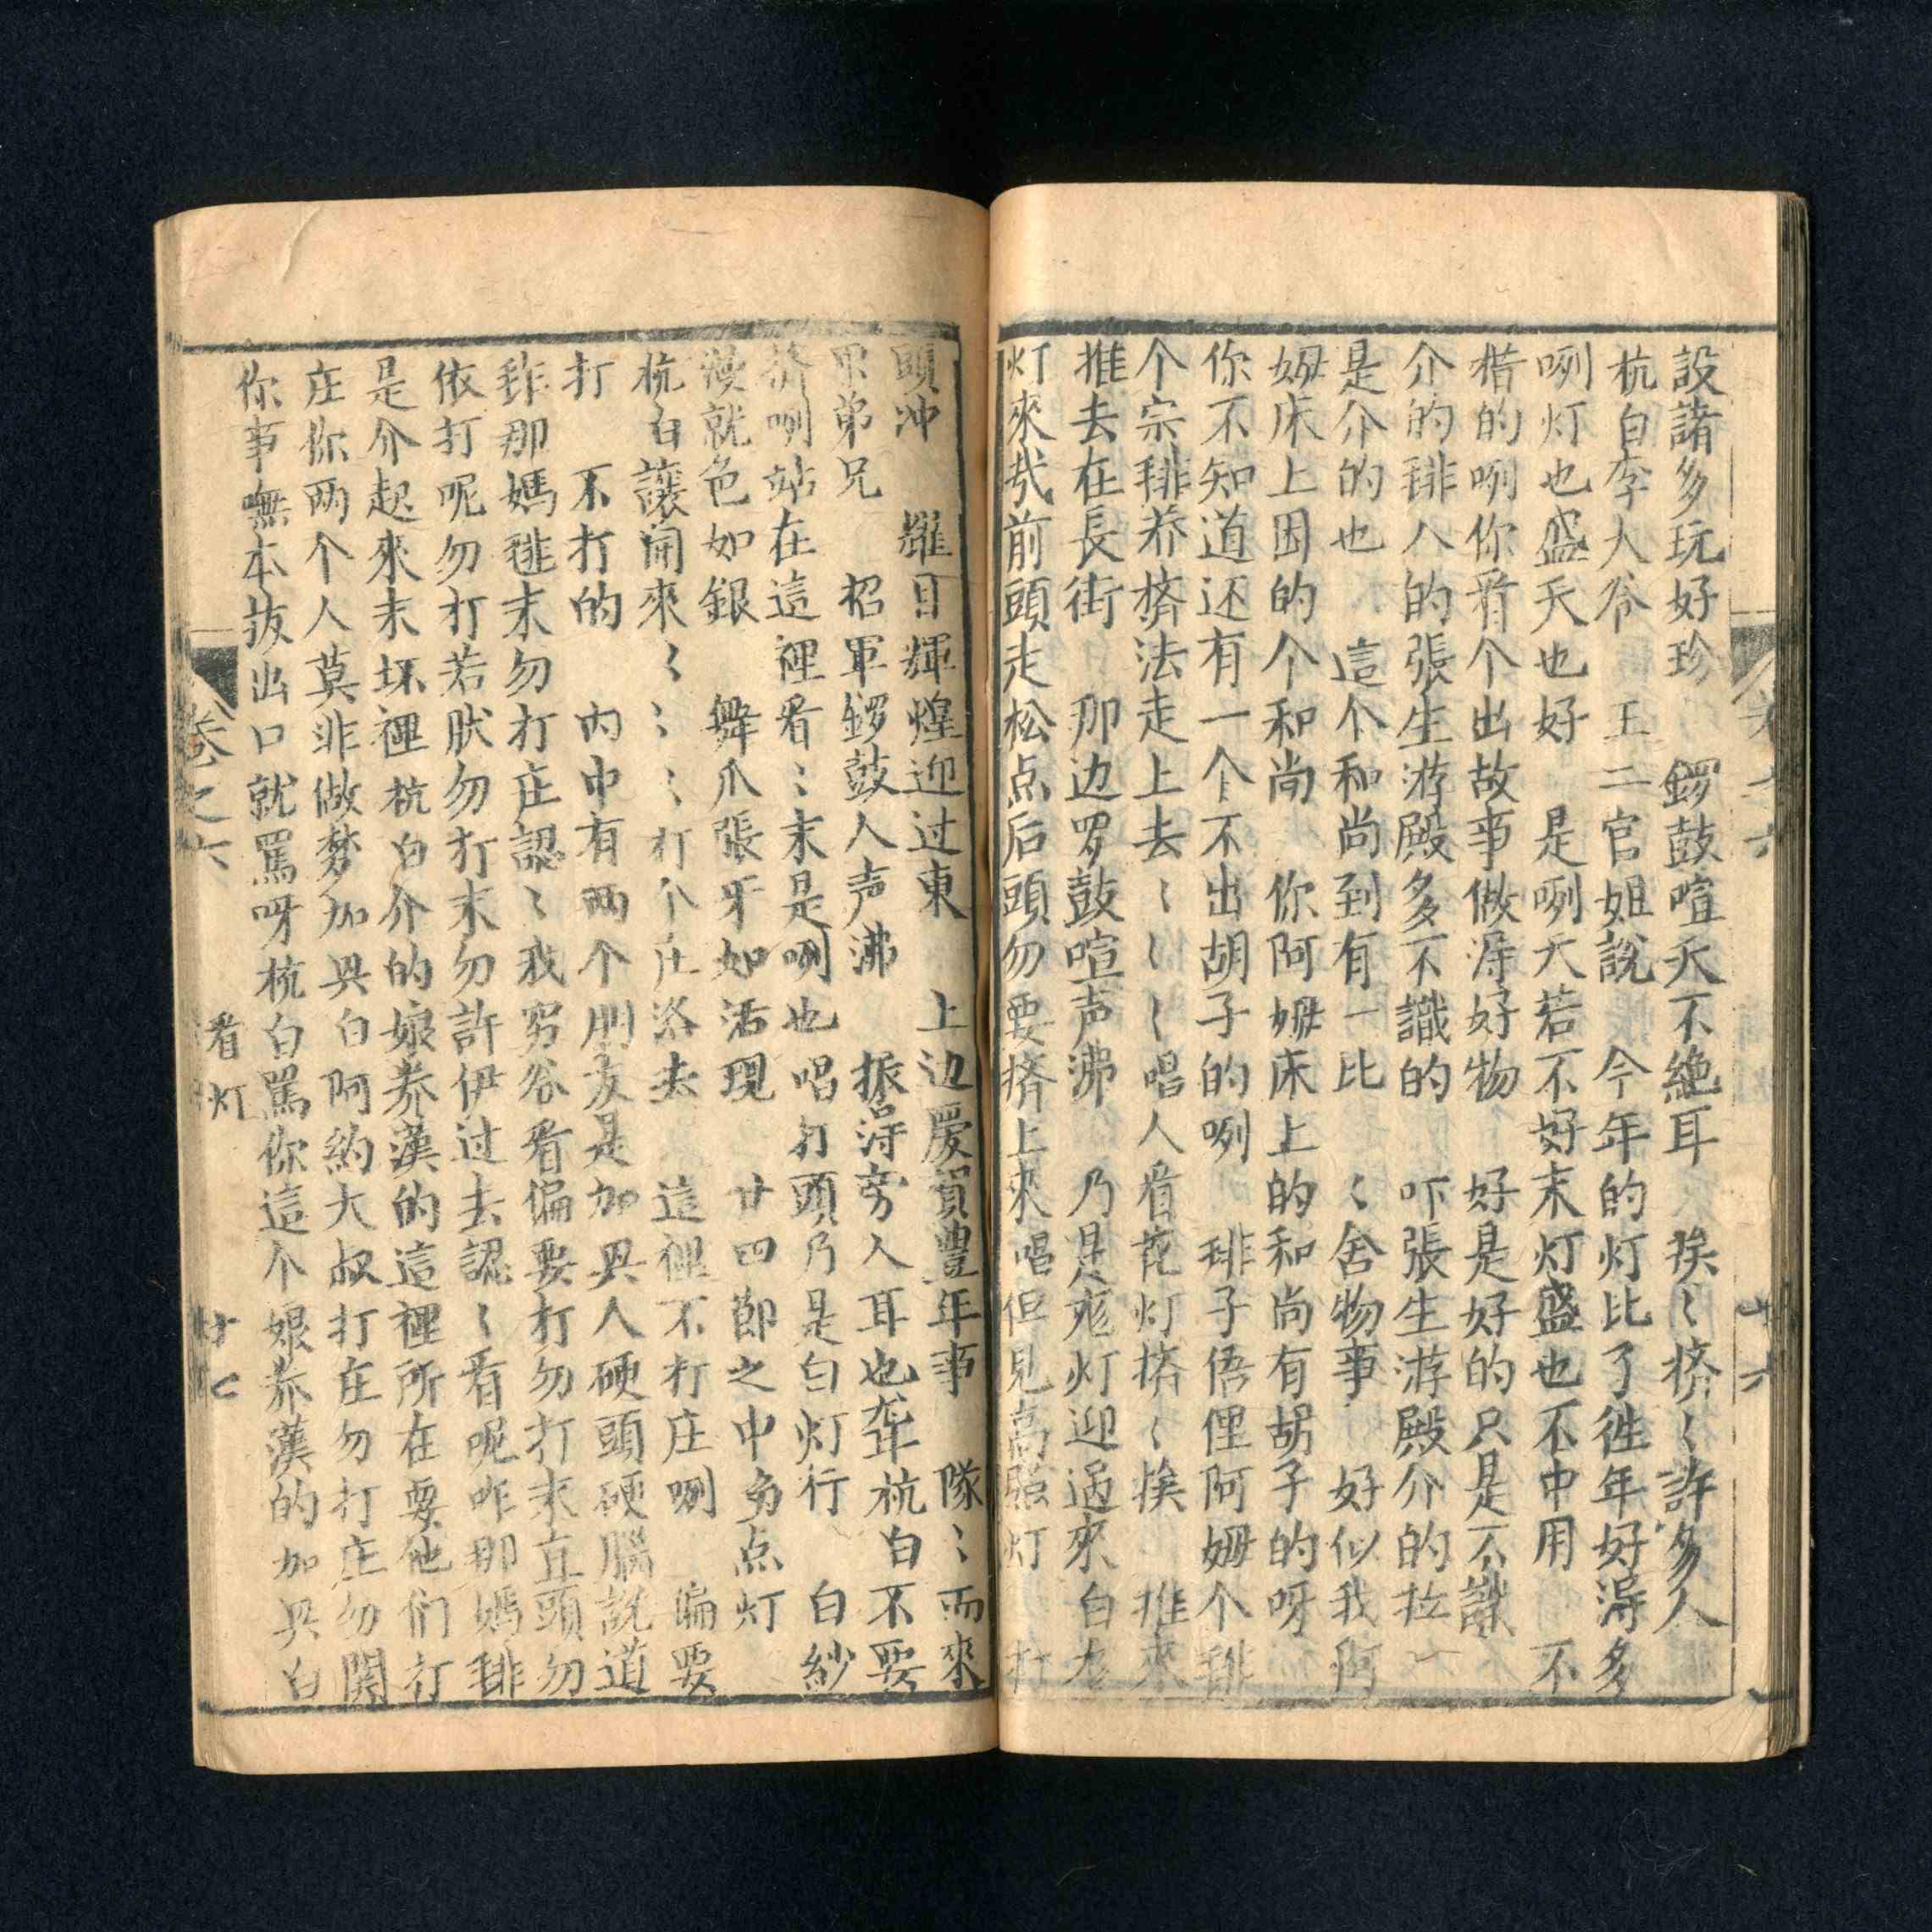 設諸多玩好珍　鑼鼓喧天不絶耳　挨〻擠〻許多人
杭白李大爷　王二官姐説　今年的灯比了徃年好淂多
咧灯也盛天也好　是咧天若不好末灯盛也不中用　不
楷的咧你看个出故事做淂好物　好是好的只是不識
介的𤟤人的張生游殿多不識的　吓張生游殿介的拉
是介的也　這个和尚到有一比　〻舍物事　好似我阿
姆床上困的个和尚　你阿姆床上的和尚有胡子的呀
你不知道还有一个不出胡子的咧　𤟤子偣俚阿姆个𤟤
个宗𤟤养擠法走上去〻〻〻唱人看花灯擠〻挨　推來
推去在長街　那边罗鼓喧声沸　乃是寃灯迎過來白
灯來哉前頭走松点后頭勿要擠上來唱但見高强灯　打
頭冲　耀目輝煌迎过東　上边慶賀豐年事　隊〻而來
弟兄　招軍鑼鼓人声沸　振淂旁人耳也聾杭白不要
擠咧站在這裡看〻末是咧也唱打頭乃是白灯行　白紗
漫就色如銀　舞爪張牙如活現　廿四節之中多点灯
杭白讓開來〻〻〻打个庄洛去　這裡不打庄咧　偏要
打　不打的　內中有两个朋友是加興人硬頭硬腦説道
那媽末勿打庄認〻我穷爷看偏要打勿打末直頭勿
依打呢勿打若肰勿打末勿許伊过去認〻看呢咋那媽𤟤
是介起來末坏裡杭白介的娘养漢的這裡所在要他们打
庄你两个人莫非做梦加興白阿約大叔打庄勿打庄勿関
你事嘸本拔出口就罵呀杭白罵你這个娘养漢的加興白
卷之六
看灯
十七
十六